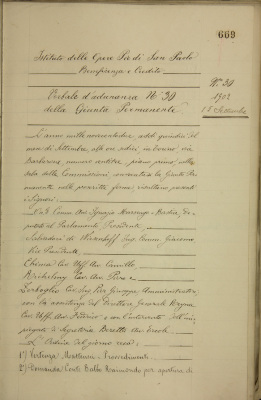 669
Istituto delle Opere Pie di San Paolo
Beneficenza e Credito
Verbale d'adunanza N° 30
della Giunta Permanente
N° 30
1903
15 Settembre
L'anno mille novecentotre, addì quindici del
mese di Settembre, alle ore undici in Torino, via
numero ventitre, piano primo, nella
Sala delle Commissioni, convocata la Giunta Per-
manente nelle prescritte forme, risultano presenti
i Signori:
Comm. Avv. Ignazio Marsengo-Bastia, De-
putato al Parlamento, Presidente
Salvadori di Wiesenhoff Ing. Comm. Giacomo
Vice Presidente
Chiesa Cav. Uff. Avv. Camillo
Cav. Avv. Piero e
Zerboglio Cav. Ing. Pier Giuseppe, Amministratori
con la assistenza del Direttore Generale
Cav. Uff. Avv. Federico, e con l'intervento dell'im-
piegato di Segreteria Beretta Avv. Enoch
L'Ordine del giorno reca:
1°) Vertenza - Provvedimenti
2°) Domanda Conte Balbo Raimondo per apertura di